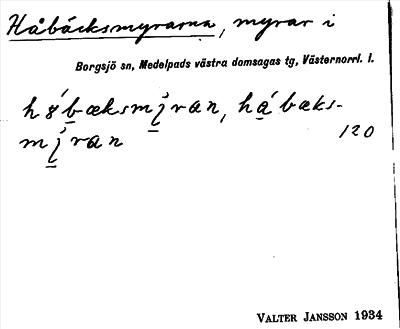 Håbäcksmyrarna, myrar i
Borgsjö sn, Medelpads västra domsagas tg, Västernorrl. l.
hó̱bæksmj̱ran, há̱bæks-
mj̱ran 120
VALTER JANSSON 1934